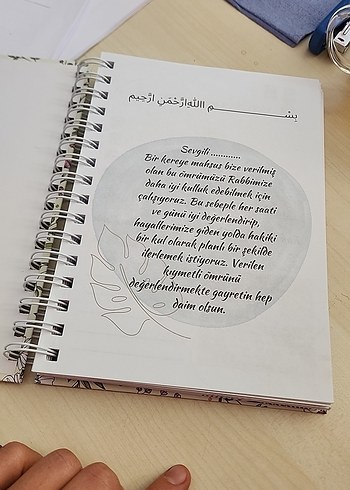 بِسْمِ اللهِ الرَّحْمَنِ الرَّحِيمِ
Sevgili ............
Bir kereye mahsus bize verilmiş
olan bu ömrümüzü Rabbimize
daha iyi kulluk edebilmek için
çalışıyoruz. Bu sebeple her saati
ve günü iyi değerlendirip,
hayallerimize giden yolda hakiki
bir kul olarak planlı bir şekilde
ilerlemek istiyoruz. Verilen
kıymetli ömrünü
değerlendirmekte gayretin hep
daim olsun.